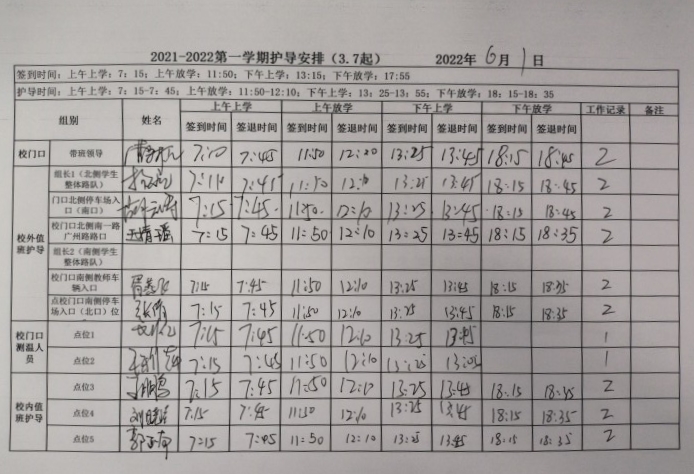 2021-2022第一学期护导安排（3.7起） 2022年 6月 1日
签到时间：上午上学：7：15；上午放学：11:50；下午上学：13:15；下午放学：17:55
护导时间：上午上学：7：15-7：45；上午放学：11:50-12:10；下午上学：13：25-13：55；下午放学：18：15-18：35
组别 姓名 上午上学 上午放学 下午上学 下午放学 工作记录 备注
签到时间 签退时间 签到时间 签退时间 签到时间 签退时间 签到时间 签退时间
校门口 带班领导 7:10 7:45 11:50 12:20 13:25 13:45 18:15 18:45 2
校外值班护导
组长1（北侧学生整体路队） 7:10 7:45 11:50 12:10 13:25 13:45 18:15 18:45 2
门口北侧停车场入口（南口） 7:15 7:45 11:50 12:10 13:25 13:45 18:15 18:45 2
校门口北侧南一路广州路路口 王婧瑶 7:15 7:45 11:50 12:10 13:25 13:45 18:15 18:35 2
组长2（南侧学生整体路队）
校门口南侧教师车辆入口 7:15 7:45 11:50 12:10 13:25 13:45 18:15 18:35 2
点校门口南侧停车场入口（北口）位 7:15 7:45 11:50 12:10 13:25 13:45 18:15 18:35 2
校门口测温人员
点位1 7:15 7:45 11:50 12:10 13:25 13:45 1
点位2 7:15 7:45 11:50 12:10 13:25 1
校内值班护导
点位3 7:15 7:45 11:50 12:10 13:25 13:45 18:15 18:45 2
点位4 7:15 7:45 11:50 12:10 13:25 13:45 18:15 18:35 2
点位5 7:15 7:45 11:50 12:10 13:25 13:45 18:15 18:35 2